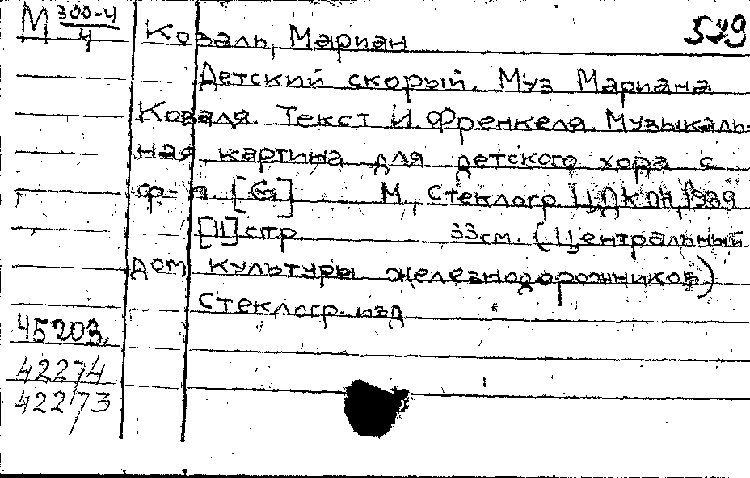 М 300-4/4 Коваль, Мариан 549
Детский скорый. Муз Мариана
Коваля. Текст И. Френкеля. Музыкаль-
ная картина для детского хора с
ф-п. [G] М., Стеклогр ЦДКЖ, 1939
[11] стр 33см. (Центральный
дом культуры железнодорожников)
Стеклогр. изд
45203
42274
42273